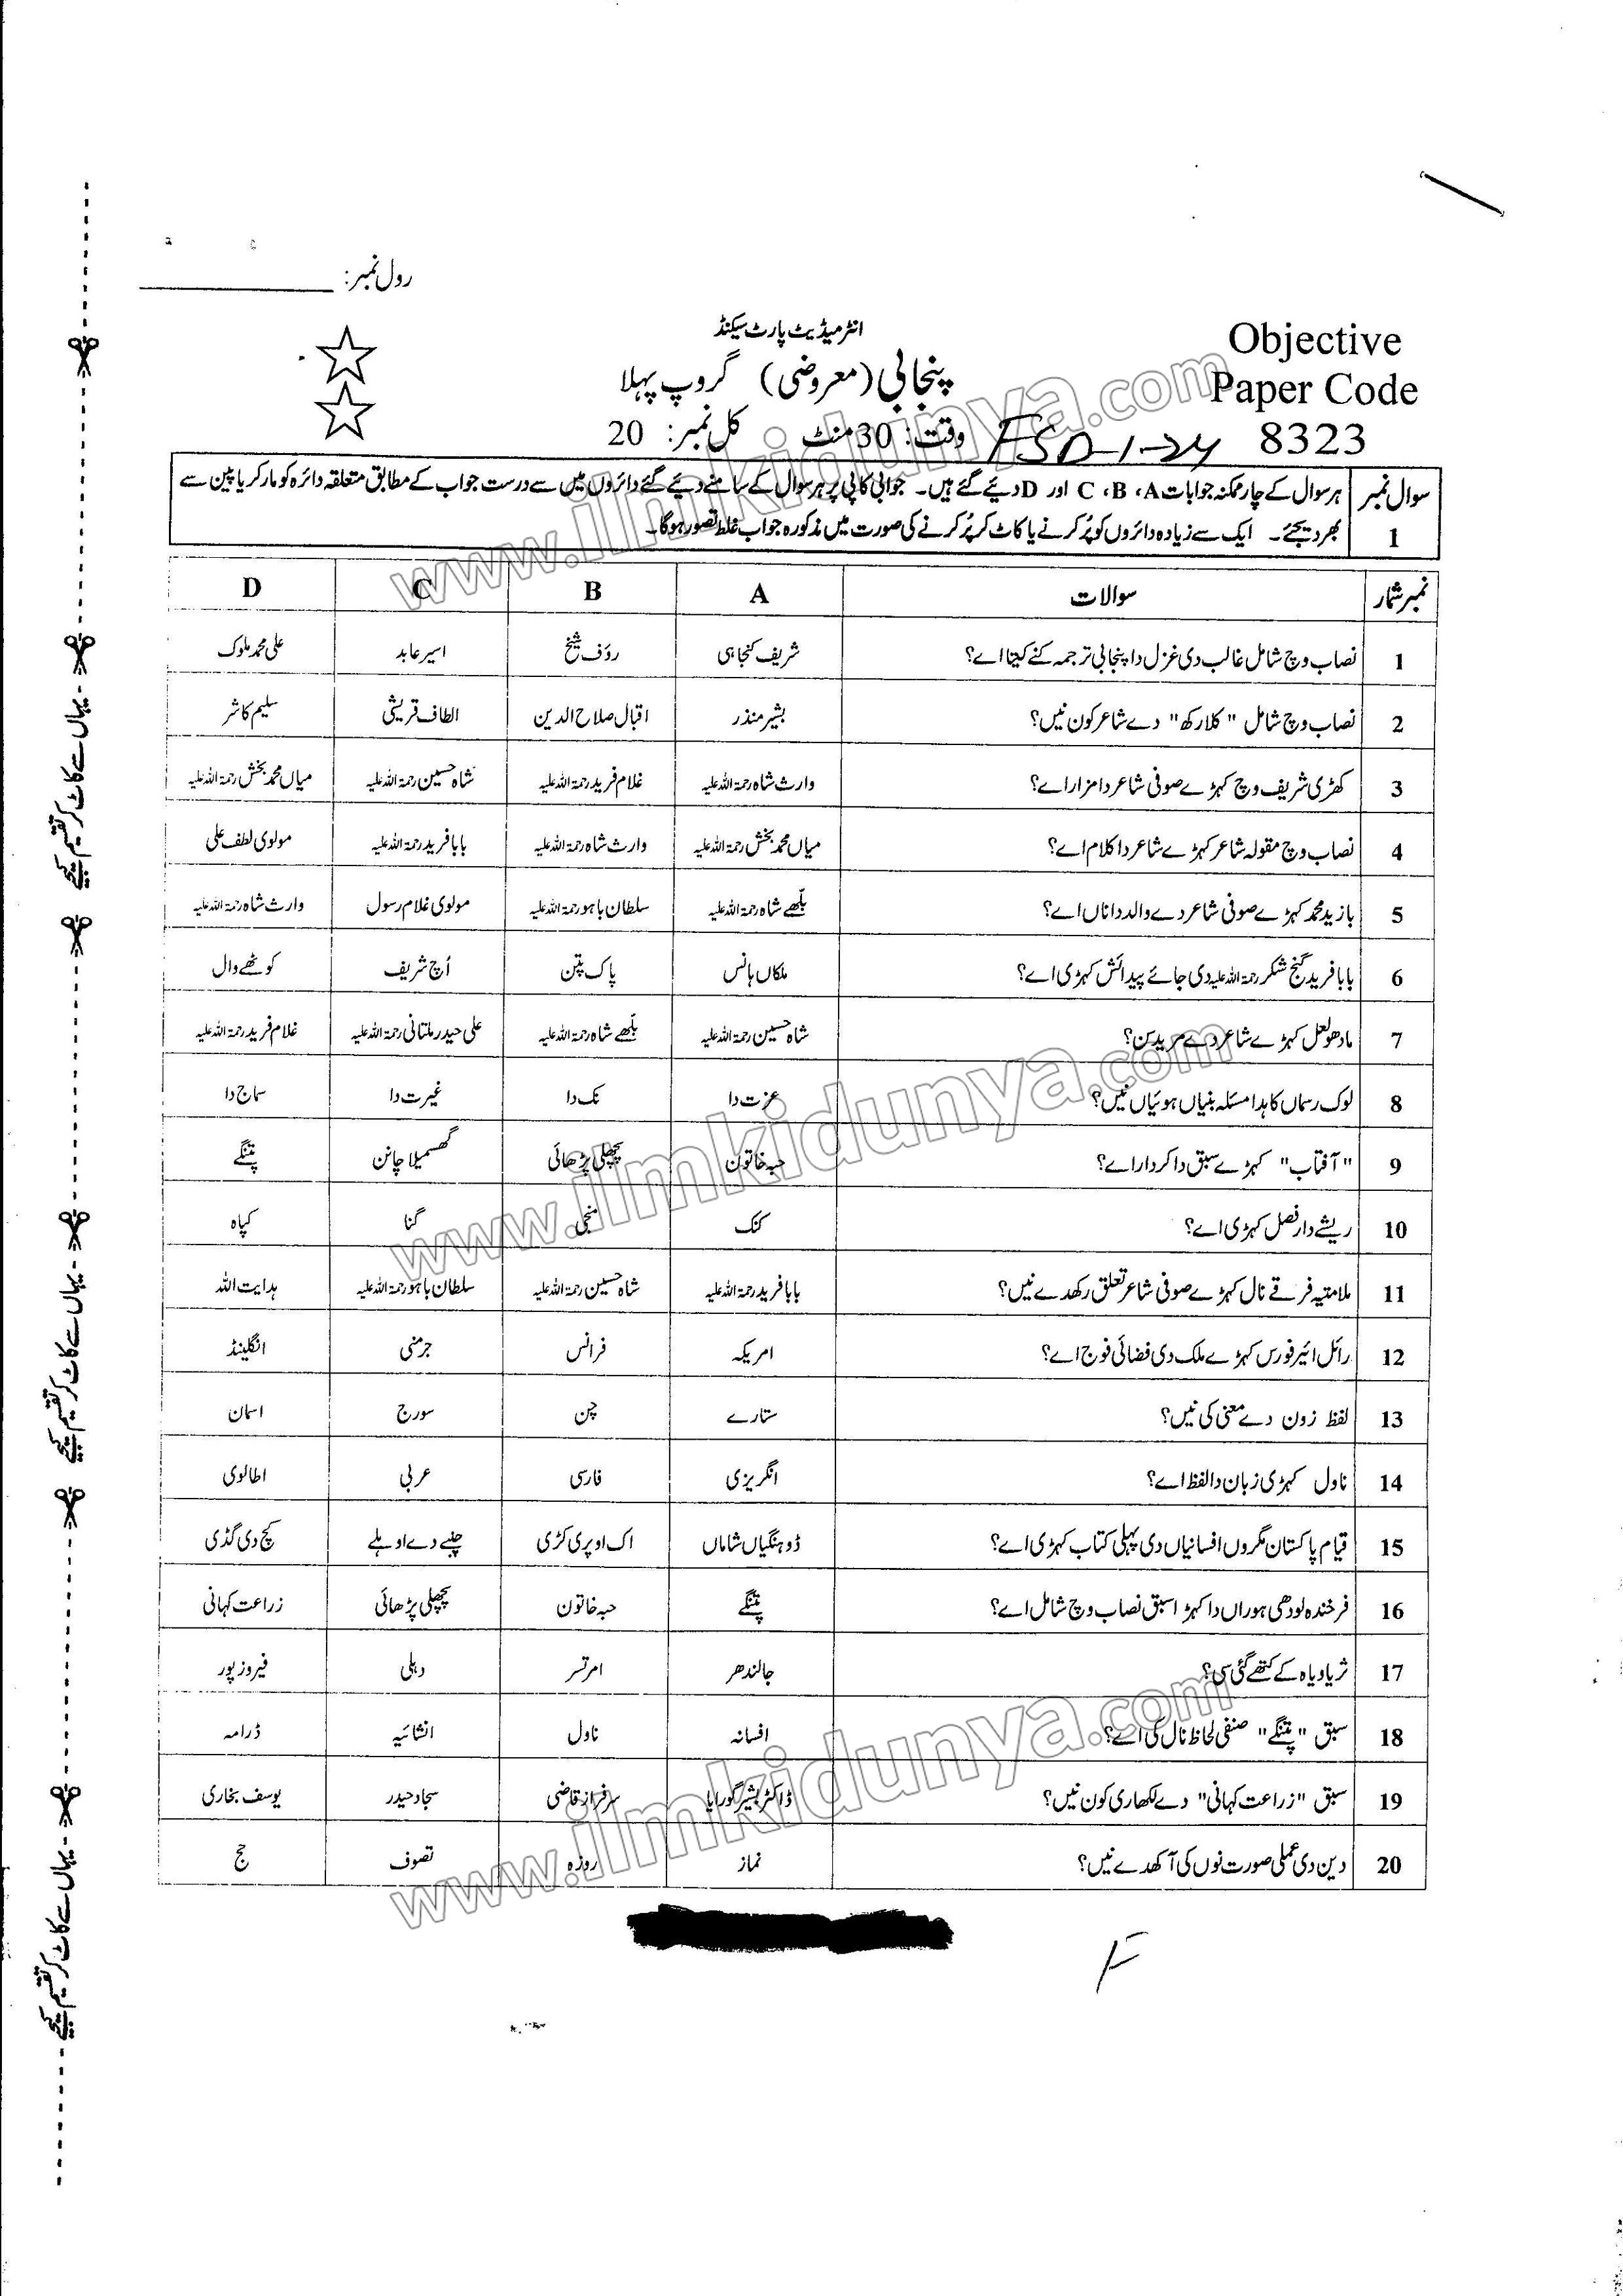 رول نمبر: ____________
انٹرمیڈیٹ پارٹ سیکنڈ
Objective
پنجابی (معروضی) گروپ پہلا
Paper Code
وقت: 30 منٹ کل نمبر: 20
8323
FSD-1-24
سوال نمبر 1
ہر سوال کے چار ممکنہ جوابات A، B، C اور D دئیے گئے ہیں۔ جوابی کاپی پر ہر سوال کے سامنے دئیے گئے دائروں میں سے درست جواب کے مطابق متعلقہ دائرہ کو مارکر یا پین سے
بھر دیجئے۔ ایک سے زیادہ دائروں کو پُر کرنے یا کاٹ کر پُر کرنے کی صورت میں مذکورہ جواب غلط تصور ہوگا۔
نمبر شمار سوالات A B C D
1 نصاب وچ شامل غالب دی غزل دا پنجابی ترجمہ کنے کیتا اے؟ شریف کنجاہی رؤف شیخ اسیر عابد علی محمد ملوک
2 نصاب وچ شامل "کلا رکھ" دے شاعر کون نیں؟ بشیر منذر اقبال صلاح الدین الطاف قریشی سلیم کاشر
3 کھڑی شریف وچ کہڑے صوفی شاعر دا مزار اے؟ وارث شاہ رحمۃ اللہ علیہ غلام فرید رحمۃ اللہ علیہ شاہ حسین رحمۃ اللہ علیہ میاں محمد بخش رحمۃ اللہ علیہ
4 نصاب وچ مقولہ شاعر کہڑے شاعر دا کلام اے؟ میاں محمد بخش رحمۃ اللہ علیہ وارث شاہ رحمۃ اللہ علیہ بابا فرید رحمۃ اللہ علیہ مولوی لطف علی
5 بازید محمد کہڑے صوفی شاعر دے والد دا ناں اے؟ بلّھے شاہ رحمۃ اللہ علیہ سلطان باہو رحمۃ اللہ علیہ مولوی غلام رسول وارث شاہ رحمۃ اللہ علیہ
6 بابا فرید گنج شکر رحمۃ اللہ علیہ دی جائے پیدائش کہڑی اے؟ ملکاں ہانس پاک پتن اُچ شریف کوٹھے وال
7 مادھو لعل کہڑے شاعر دے مرید سن؟ شاہ حسین رحمۃ اللہ علیہ بلّھے شاہ رحمۃ اللہ علیہ علی حیدر ملتانی رحمۃ اللہ علیہ غلام فرید رحمۃ اللہ علیہ
8 لوک رسماں کاہدا مسئلہ بنیاں ہوئیاں نیں؟ عزت دا نک دا غیرت دا سماج دا
9 "آفتاب" کہڑے سبق دا کردار اے؟ حبہ خاتون پچھلی پڑھائی گھسمیلا چانن پتنگے
10 ریشے دار فصل کہڑی اے؟ کنک منجی گنا کپاہ
11 ملامتیہ فرقے نال کہڑے صوفی شاعر تعلق رکھدے نیں؟ بابا فرید رحمۃ اللہ علیہ شاہ حسین رحمۃ اللہ علیہ سلطان باہو رحمۃ اللہ علیہ ہدایت اللہ
12 رائل ائیر فورس کہڑے ملک دی فضائی فوج اے؟ امریکہ فرانس جرمنی انگلینڈ
13 لفظ زون دے معنی کی نیں؟ ستارے چن سورج اسمان
14 ناول کہڑی زبان دا لفظ اے؟ انگریزی فارسی عربی اطالوی
15 قیام پاکستان مگروں افسانیاں دی پہلی کتاب کہڑی اے؟ ڈوہنگیاں شاماں اک اوپری کڑی چنبے دے اوہلے کچ دی گڈی
16 فرخندہ لودھی ہوراں دا کہڑا سبق نصاب وچ شامل اے؟ پتنگے حبہ خاتون پچھلی پڑھائی زراعت کہانی
17 ثریا ویاہ کے کتھے گئی سی؟ جالندھر امرتسر دہلی فیروز پور
18 سبق "پتنگے" صنفی لحاظ نال کی اے؟ افسانہ ناول انشائیہ ڈرامہ
19 سبق "زراعت کہانی" دے لکھاری کون نیں؟ ڈاکٹر بشیر گورایا سرفراز قاضی سجاد حیدر یوسف بخاری
20 دین دی عملی صورت نوں کی آکھدے نیں؟ نماز روزہ تصوف حج
F
یہاں سے کاٹ کر تقسیم کیجئے
یہاں سے کاٹ کر تقسیم کیجئے
یہاں سے کاٹ کر تقسیم کیجئے
یہاں سے کاٹ کر تقسیم کیجئے
www.ilmkidunya.com
www.ilmkidunya.com
www.ilmkidunya.com